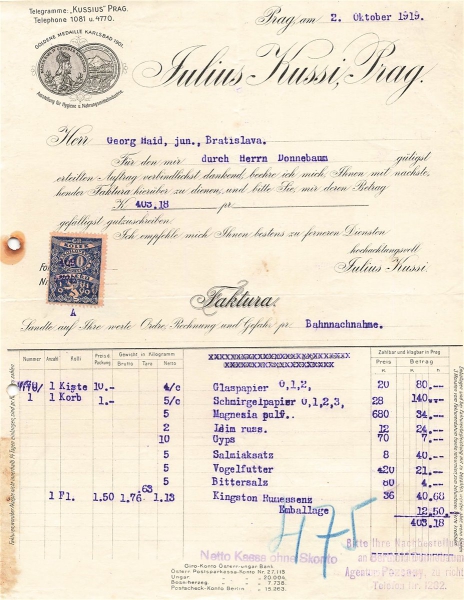 Telegramme: „KUSSIUS" PRAG.
Telephone 1081 u. 4770.
GOLDENE MEDAILLE KARLSBAD 1901.
Ausstellung für Hygiene u. Nahrungsmittelindustrie.
Prag, am 2. Oktober 1919.
Julius Kussi, Prag.
Herr Georg Haid, jun., Bratislava.
Für den mir durch Herrn Donnebaum gütigst
erteilten Auftrag verbindlichst dankend, beehre ich mich, Ihnen mit nachste-
hender Faktura hierüber zu dienen, und bitte Sie, mir deren Betrag
K 403.18 pr
gefälligst gutzuschreiben.
Ich empfehle mich Ihnen bestens zu ferneren Diensten
hochachtungsvoll
Julius Kussi.
Faktura
A
Sandte auf Ihre werte Ordre, Rechnung und Gefahr pr. Bahnnachnahme.
Nummer Anzahl Kolli Preis d. Packung Gewicht in Kilogramm Zahlbar und klagbar in Prag
Brutto Tara Netto Preis Betrag
K K
1 Kiste 10.— 4/c Glaspapier 0,1,2, 20 80.—
1 1 Korb 1.— 5/c Schmirgelpapier 0,1,2,3, 28 140.—
5 Magnesia pulv. 680 34.—
2 Leim russ. 12 24.—
10 Gyps 70 7.—
5 Salmiaksatz 8 40.—
5 Vogelfutter 420 21.—
5 Bittersalz 80 4.—
1 Fl. 1.50 1.76 63 1.13 Kingston Rumessenz 36 40.68
Emballage 12.50
403.18
475
Netto Kassa ohne Skonto
Bitte Ihre Nachbestellung
an
Agentur
Telefon Nr. 1292.
Giro-Konto Österr.-ungar. Bank.
Österr. Postsparkasse-Konto Nr. 27.113
Ungar. „ „ 20.004
Bosn.herzeg. „ „ 7.738
Postscheck-Konto Berlin „ 15.263